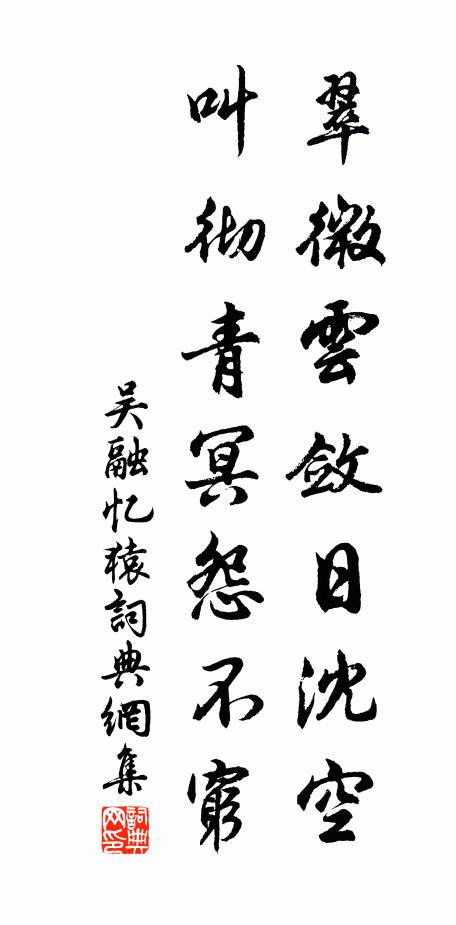 翠微雲斂日沈空
叫彻青冥怨不窮
吴融忆猿詞典網集
詞典网印